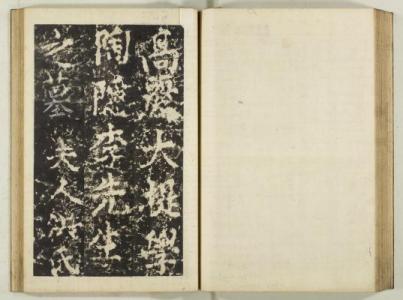 高麗大提學
陶隱李先生
之墓 夫人洪氏